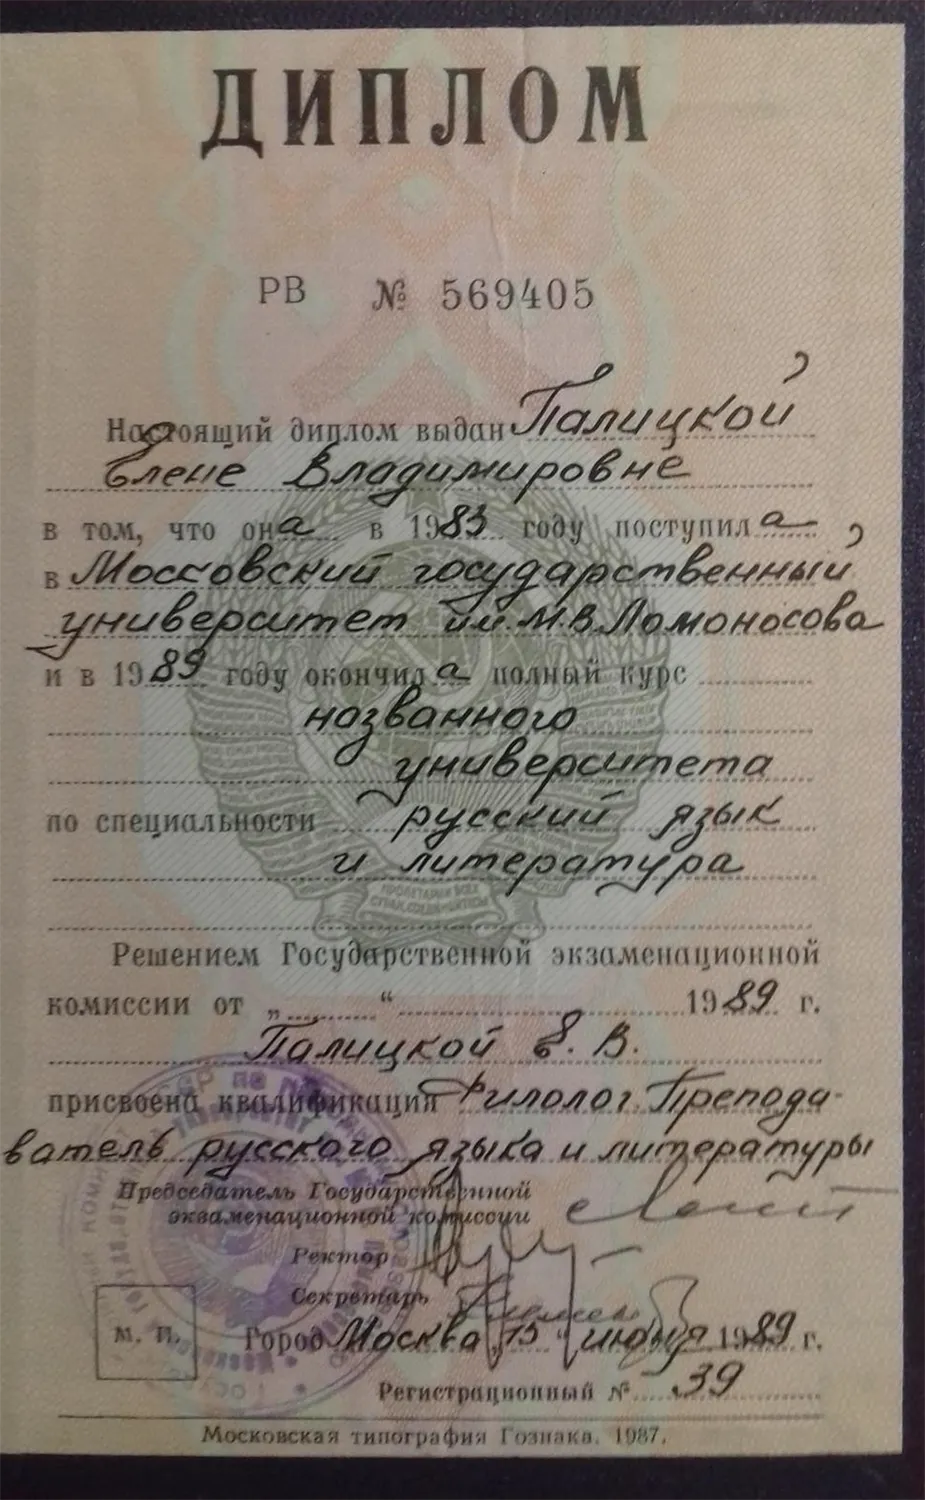 ДИПЛОМ
РВ № 569405
Настоящий диплом выдан Палицкой
Елене Владимировне
в том, что она в 1983 году поступила
в Московский государственный
университет им. М.В. Ломоносова
и в 1989 году окончила полный курс
нозванного
университета
по специальности русский язык
и литература
ПРОЛЕТАРИИ ВСЕХ
СТРАН, СОЕДИНЯЙТЕСЬ!
Решением Государственной экзаменационной
комиссии от „ “ 1989 г.
Палицкой Е. В.
присвоена квалификация Филолог Препода-
ватель русского языка и литературы
Председатель Государственной
экзаменационной комиссии
Ректор
Секретарь
М. П. Город Москва „15“ июня 1989 г.
Регистрационный № 39
Московская типография Гознака. 1987.